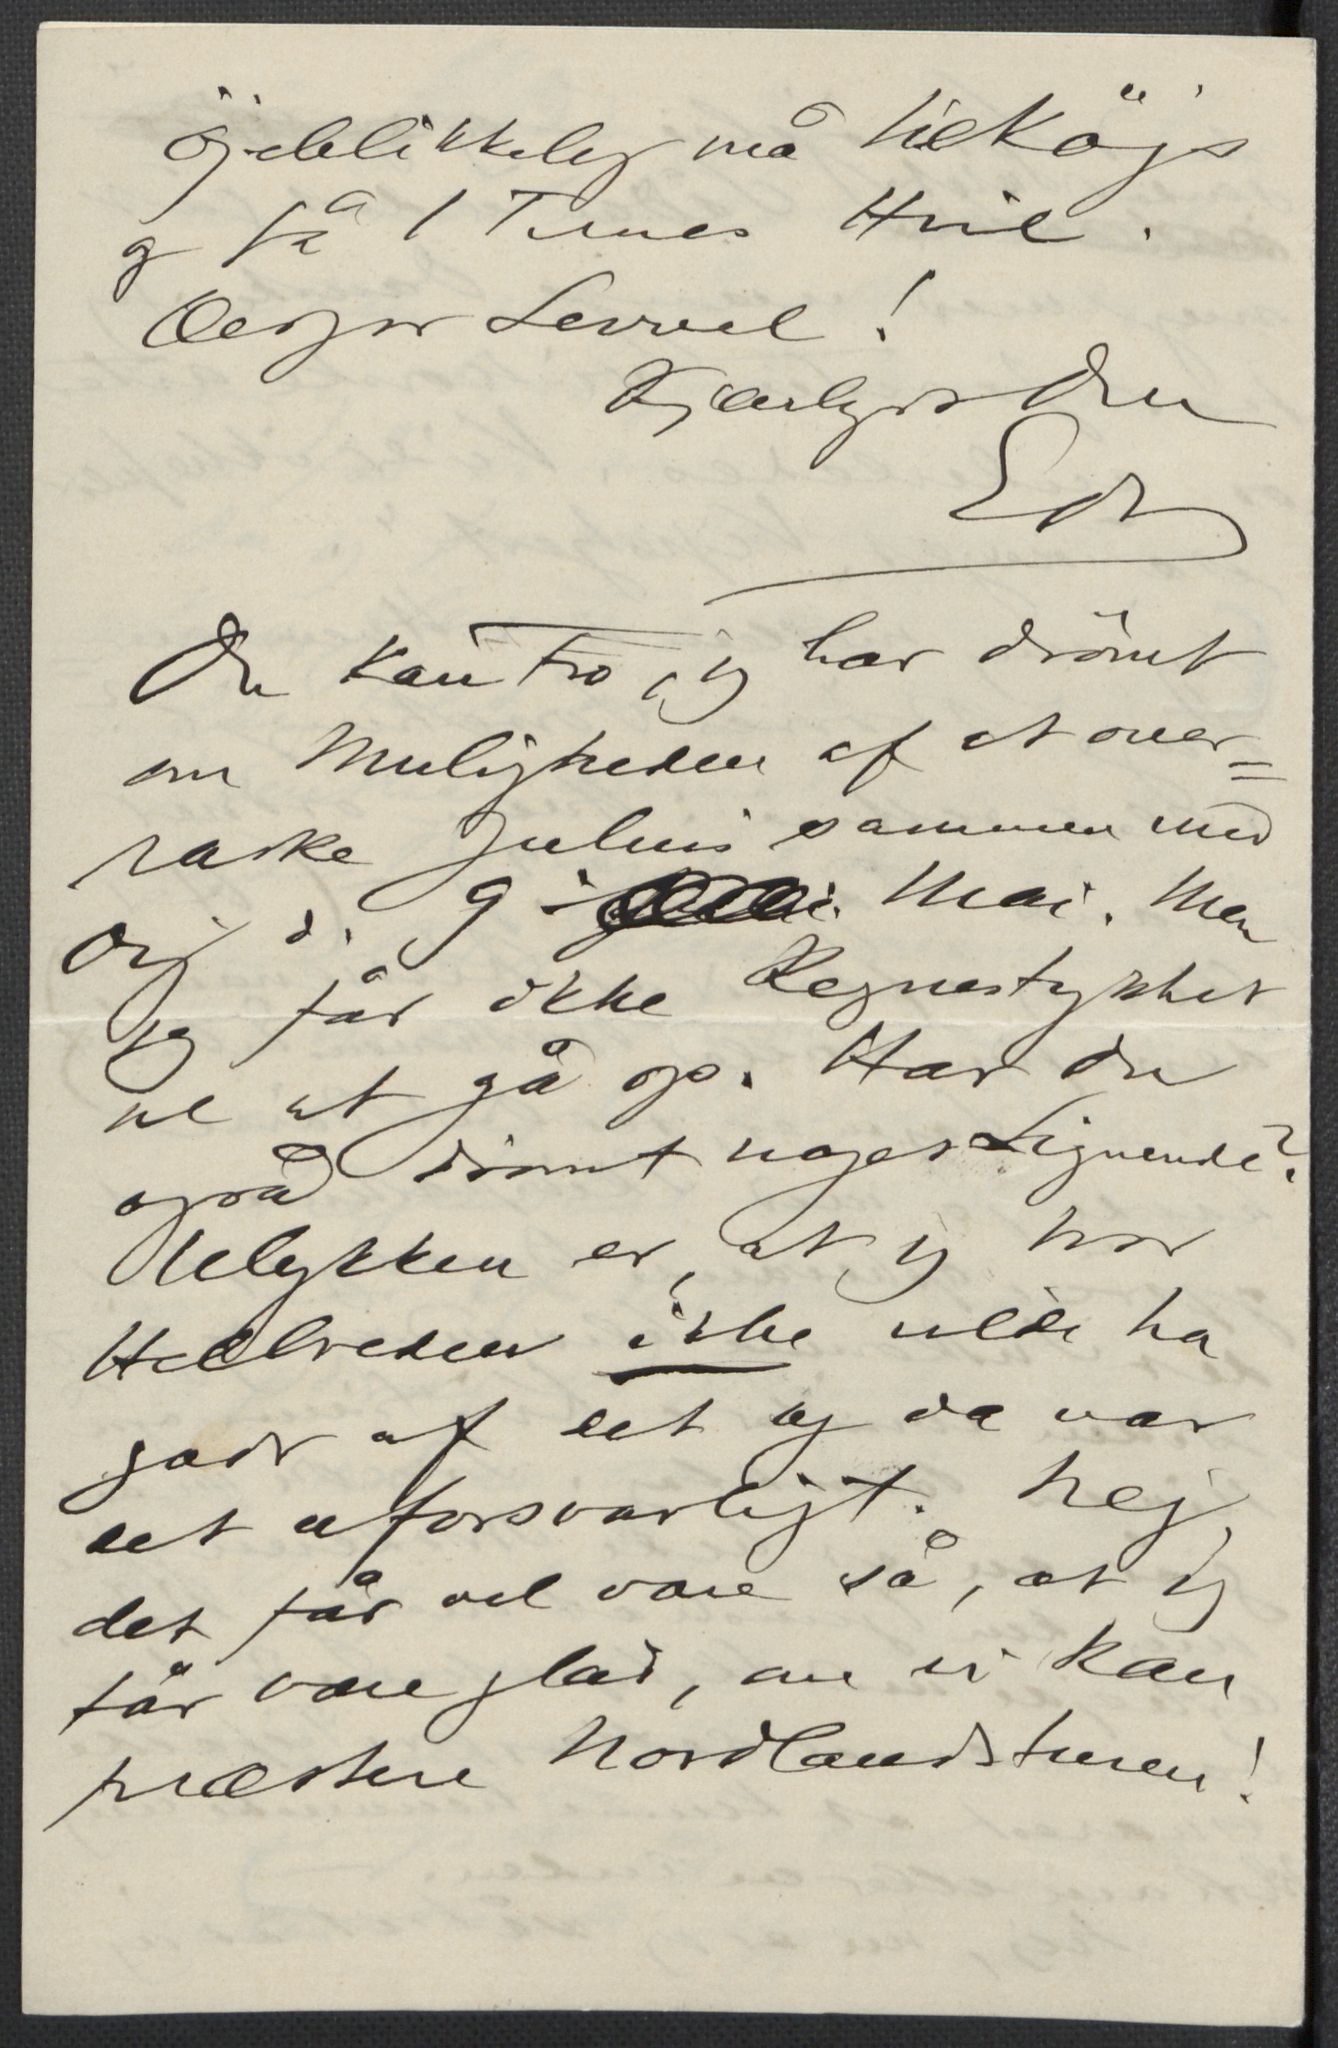 öjeblikkelig må tilköjs
og få 1 Times Hvil.
Derfor Levvel!
Kjærligst Din
Edv
Du kan tro, jeg har drömt
om Muligheden af at over=
raske Julius sammen med
Dig d. 9 Mai. Men
jeg får ikke Regnestykket
til at gå op. Har Du
også drömt noget Lignende?
Ulykken er, at jeg tror
Helbreden ikke vilde ha
godt af det og da var
det uforsvarligt. Nej,
det får vel være så, at jeg
får være glad, om vi kan
præstere Nordlandsturen!